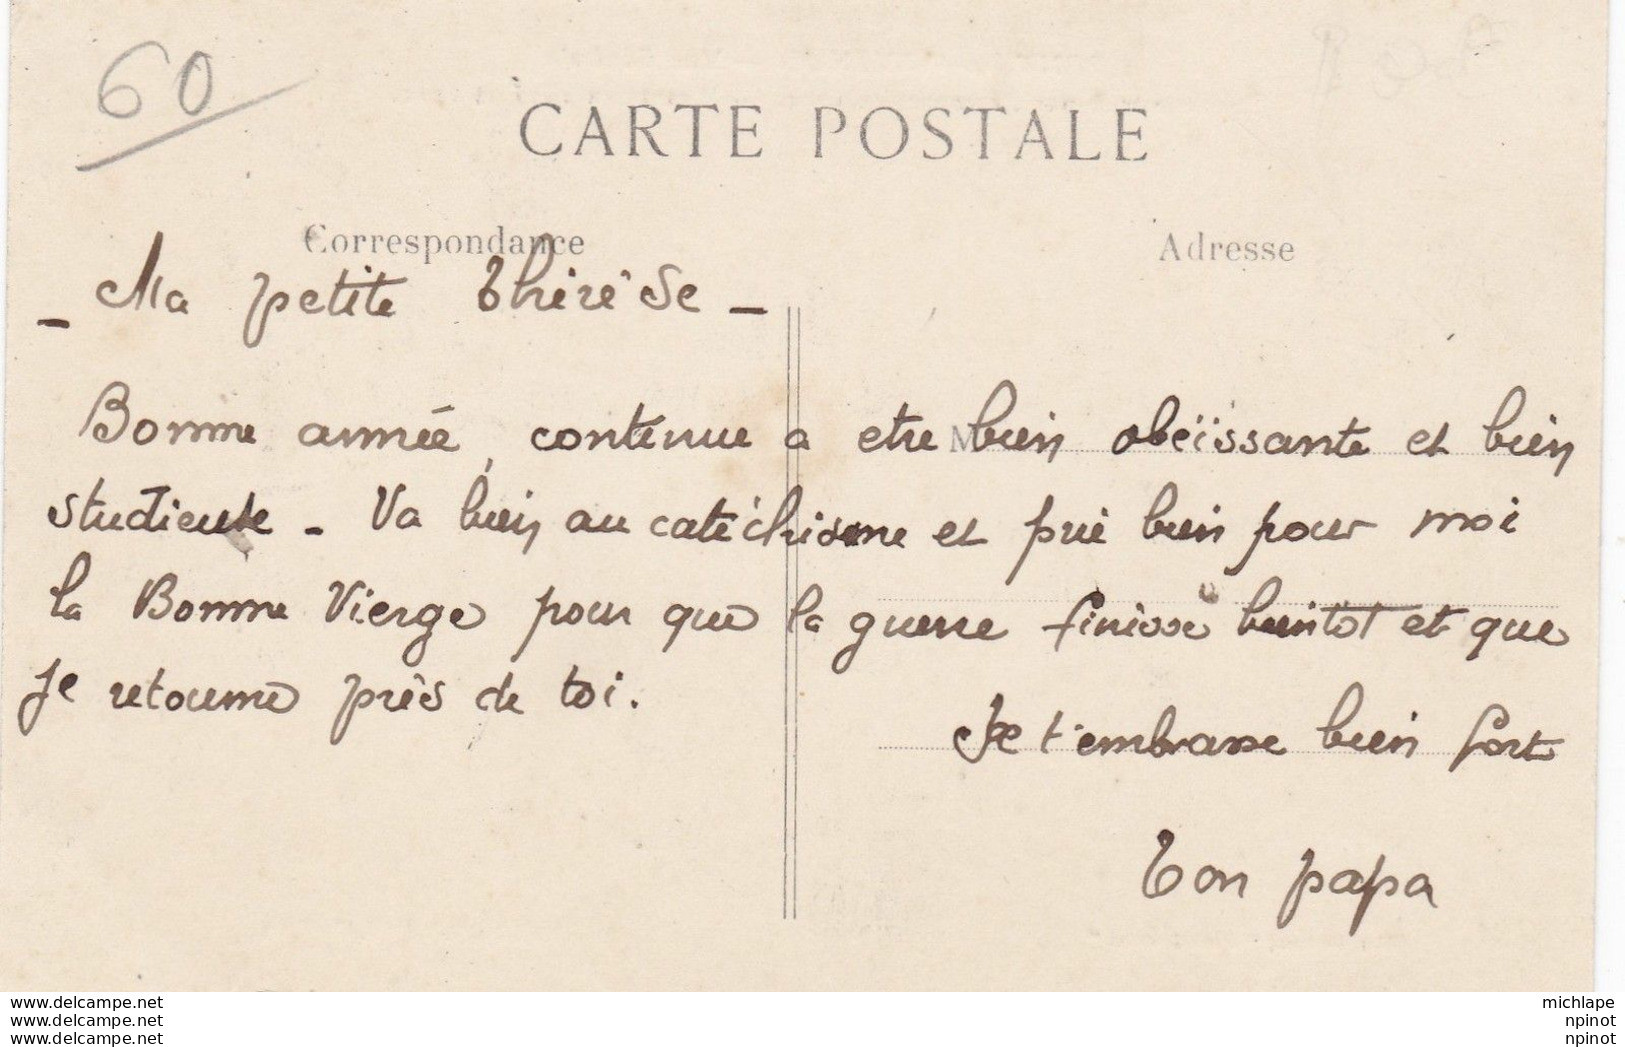 60
CARTE POSTALE
Correspondance
Adresse
- Ma petite Thérèse -
Bonne année, contenue a etre bien obeïssante et bien
studieuse - Va bien au catéchisme et prie bien pour moi
la Bonne Vierge pour que la guerre finisse bientot et que
je retourne près de toi.
Je t'embrasse bien fort
Ton papa
M
www.delcampe.net
www.delcampe.net
www.delcampe.net
michlape
npinot
npinot